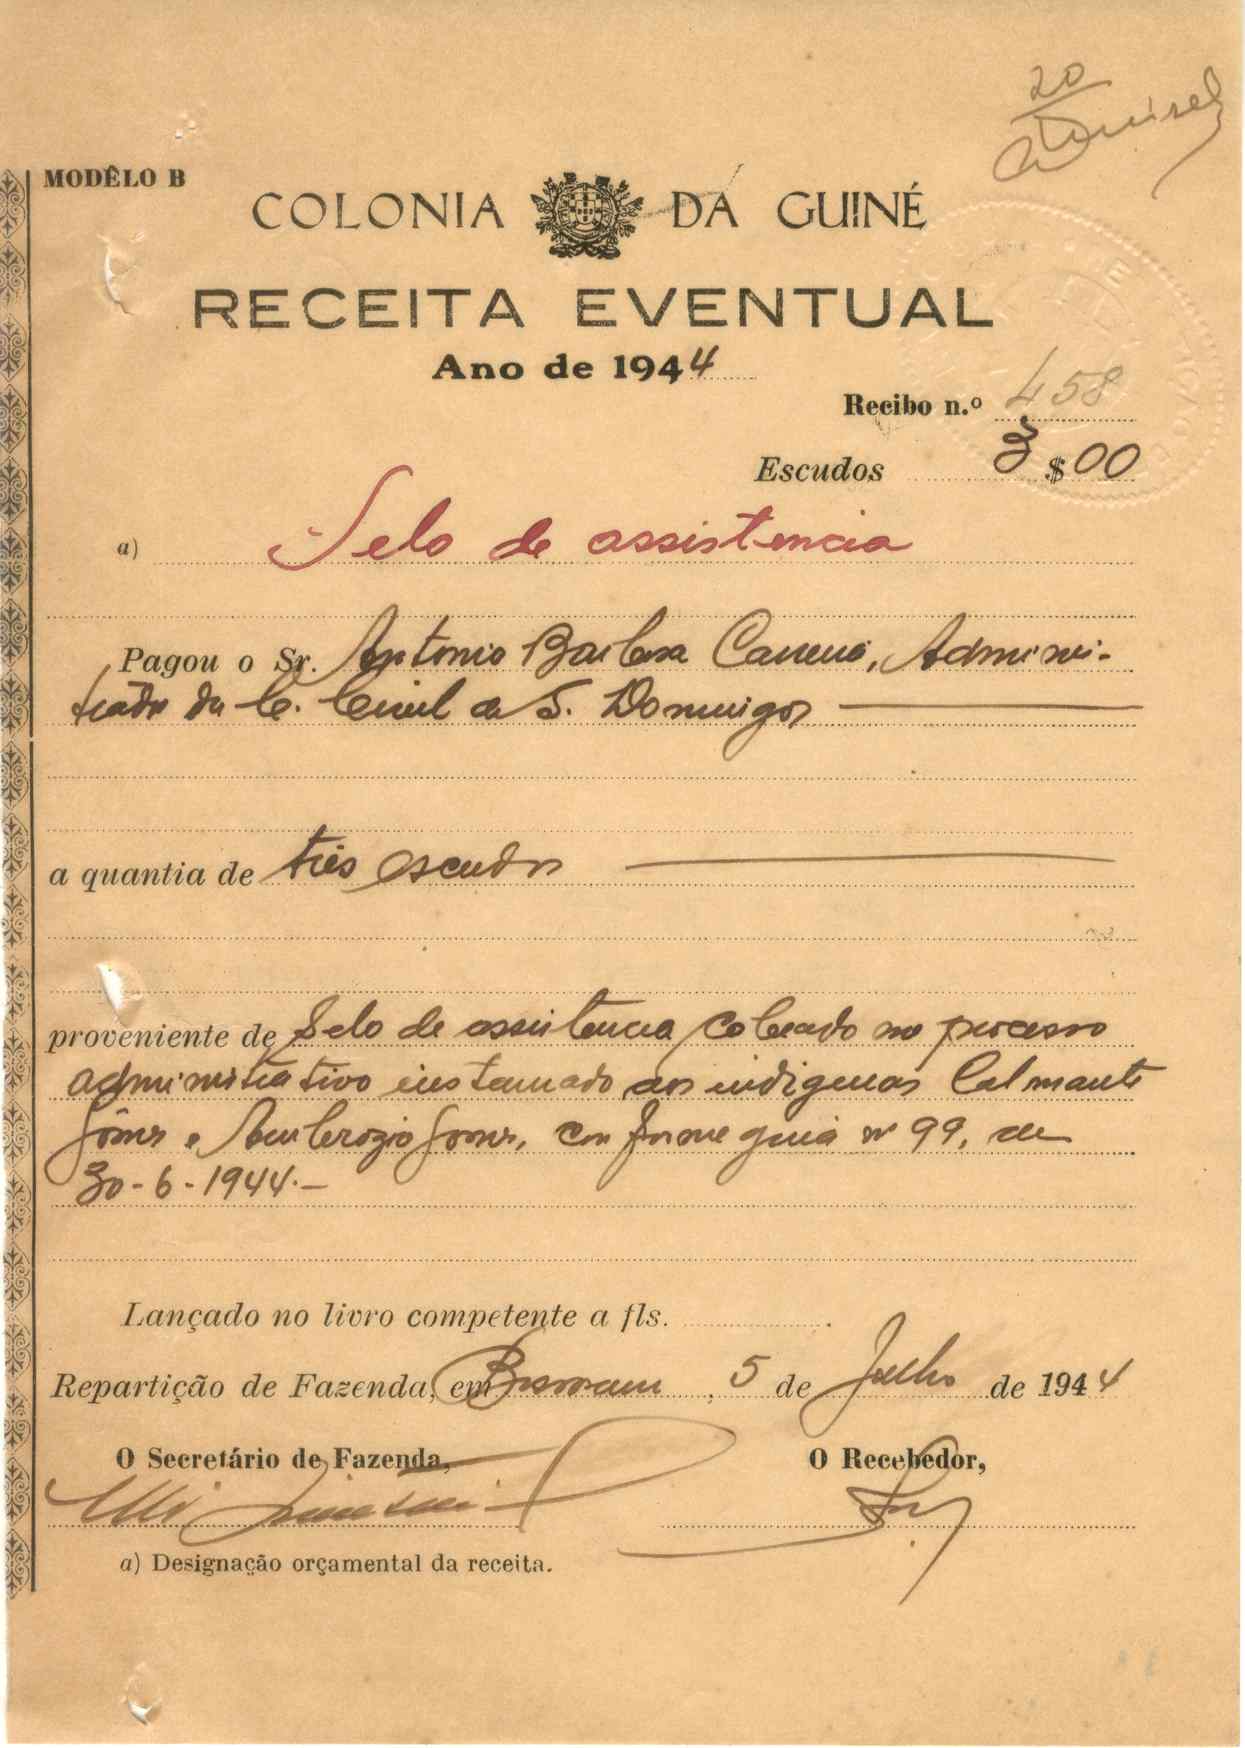 20
MODÊLO B
COLONIA DA GUINÉ
RECEITA EVENTUAL
Ano de 1944
Recibo n.º 458
Escudos 3$00
a) Selo de assistencia
Pagou o Sr. Antonio Barbosa Carreira, Adminis-
trador da C. Civil de S. Domingos
a quantia de três escudos
proveniente de Selo de assistencia cobrado no processo
administrativo instaurado aos indigenas Calmante
Gomes e Ambrozio Gomes, conforme guia nº 99, de
30-6-1944.-
Lançado no livro competente a fls. .
Repartição de Fazenda, em Bissau, 5 de Julho de 1944
O Secretário de Fazenda, O Recebedor,
a) Designação orçamental da receita.